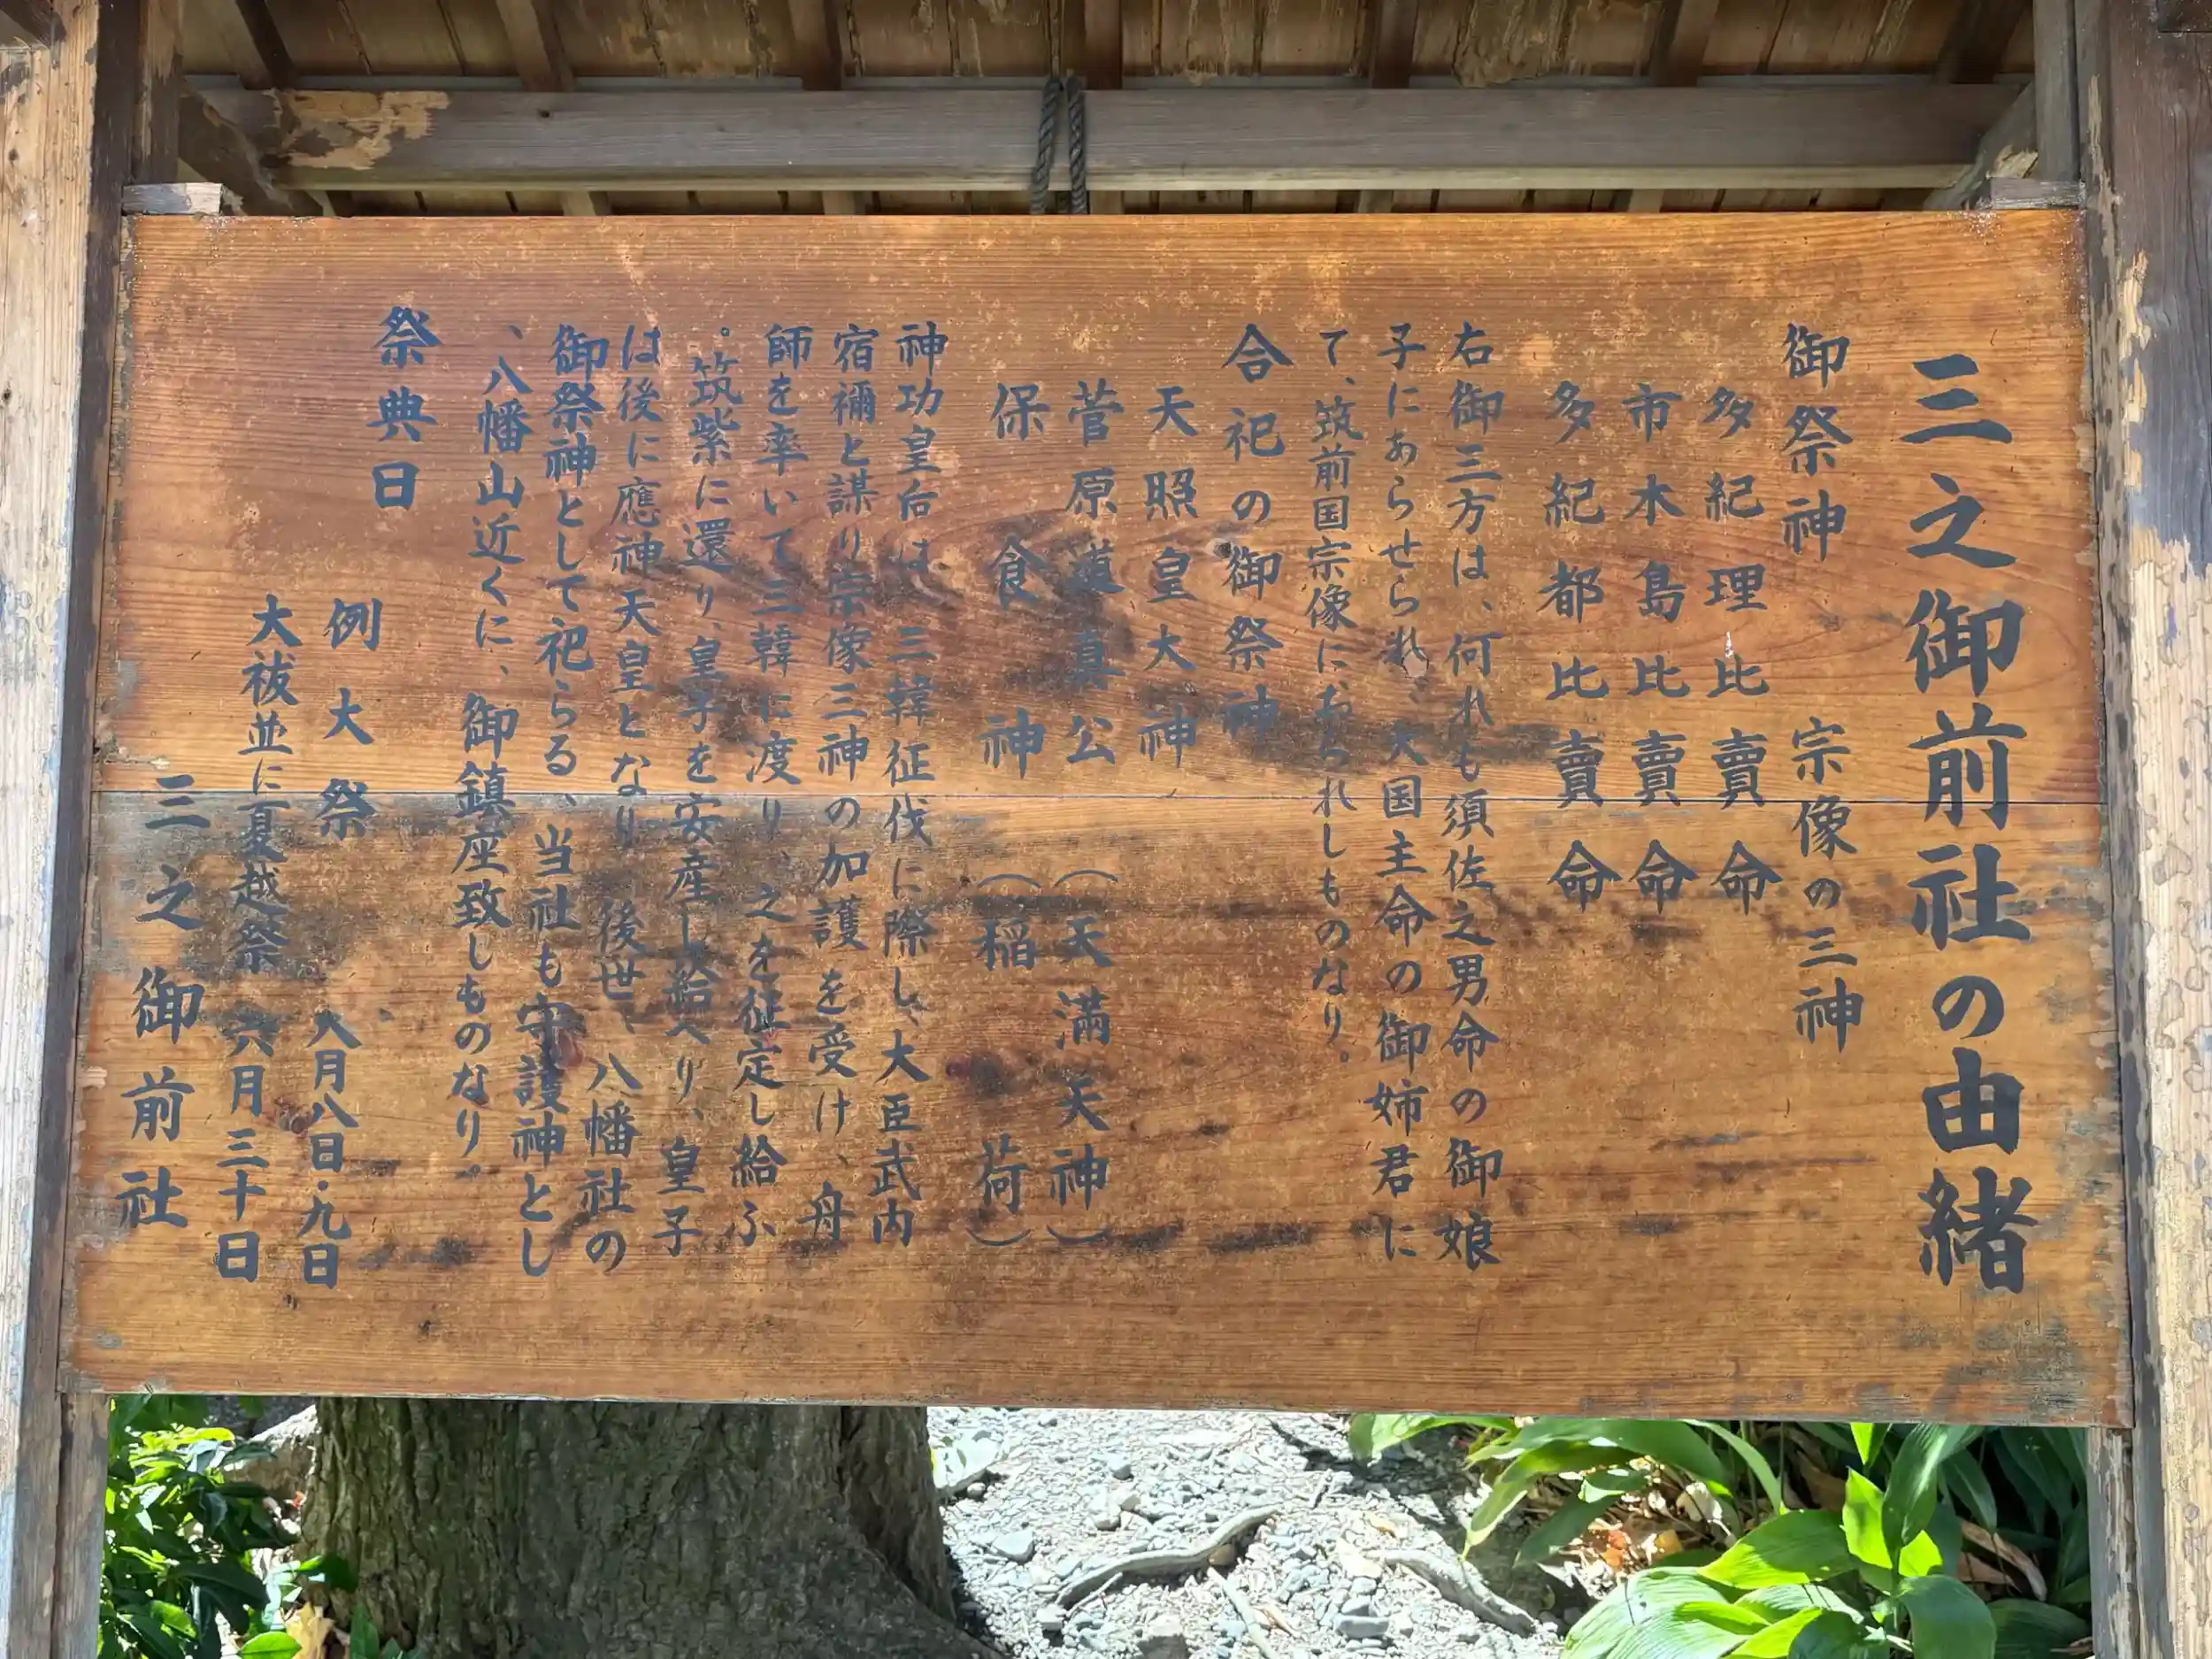 三之御前社の由緒
御祭神　宗像の三神
多紀理比賣命
市木島比賣命
多紀都比賣命
右御三方は、何れも須佐之男命の御娘
子にあらせられ、大国主命の御姉君に
て、筑前国宗像におられしものなり。
合祀の御祭神
天照皇大神
菅原道真公（天満天神）
保食神（稲荷）
神功皇后は、三韓征伐に際し、大臣武内
宿禰と謀り宗像三神の加護を受け、舟
師を率いて三韓に渡り、之を征定し給ふ
。筑紫に還り、皇子を安産し給へり、皇子
は後に應神天皇となり、後世、八幡社の
御祭神として祀らる、当社も守護神とし
、八幡山近くに、御鎮座致しものなり。
祭典日
例大祭　八月八日・九日
大祓並に夏越祭　六月三十日
三之御前社